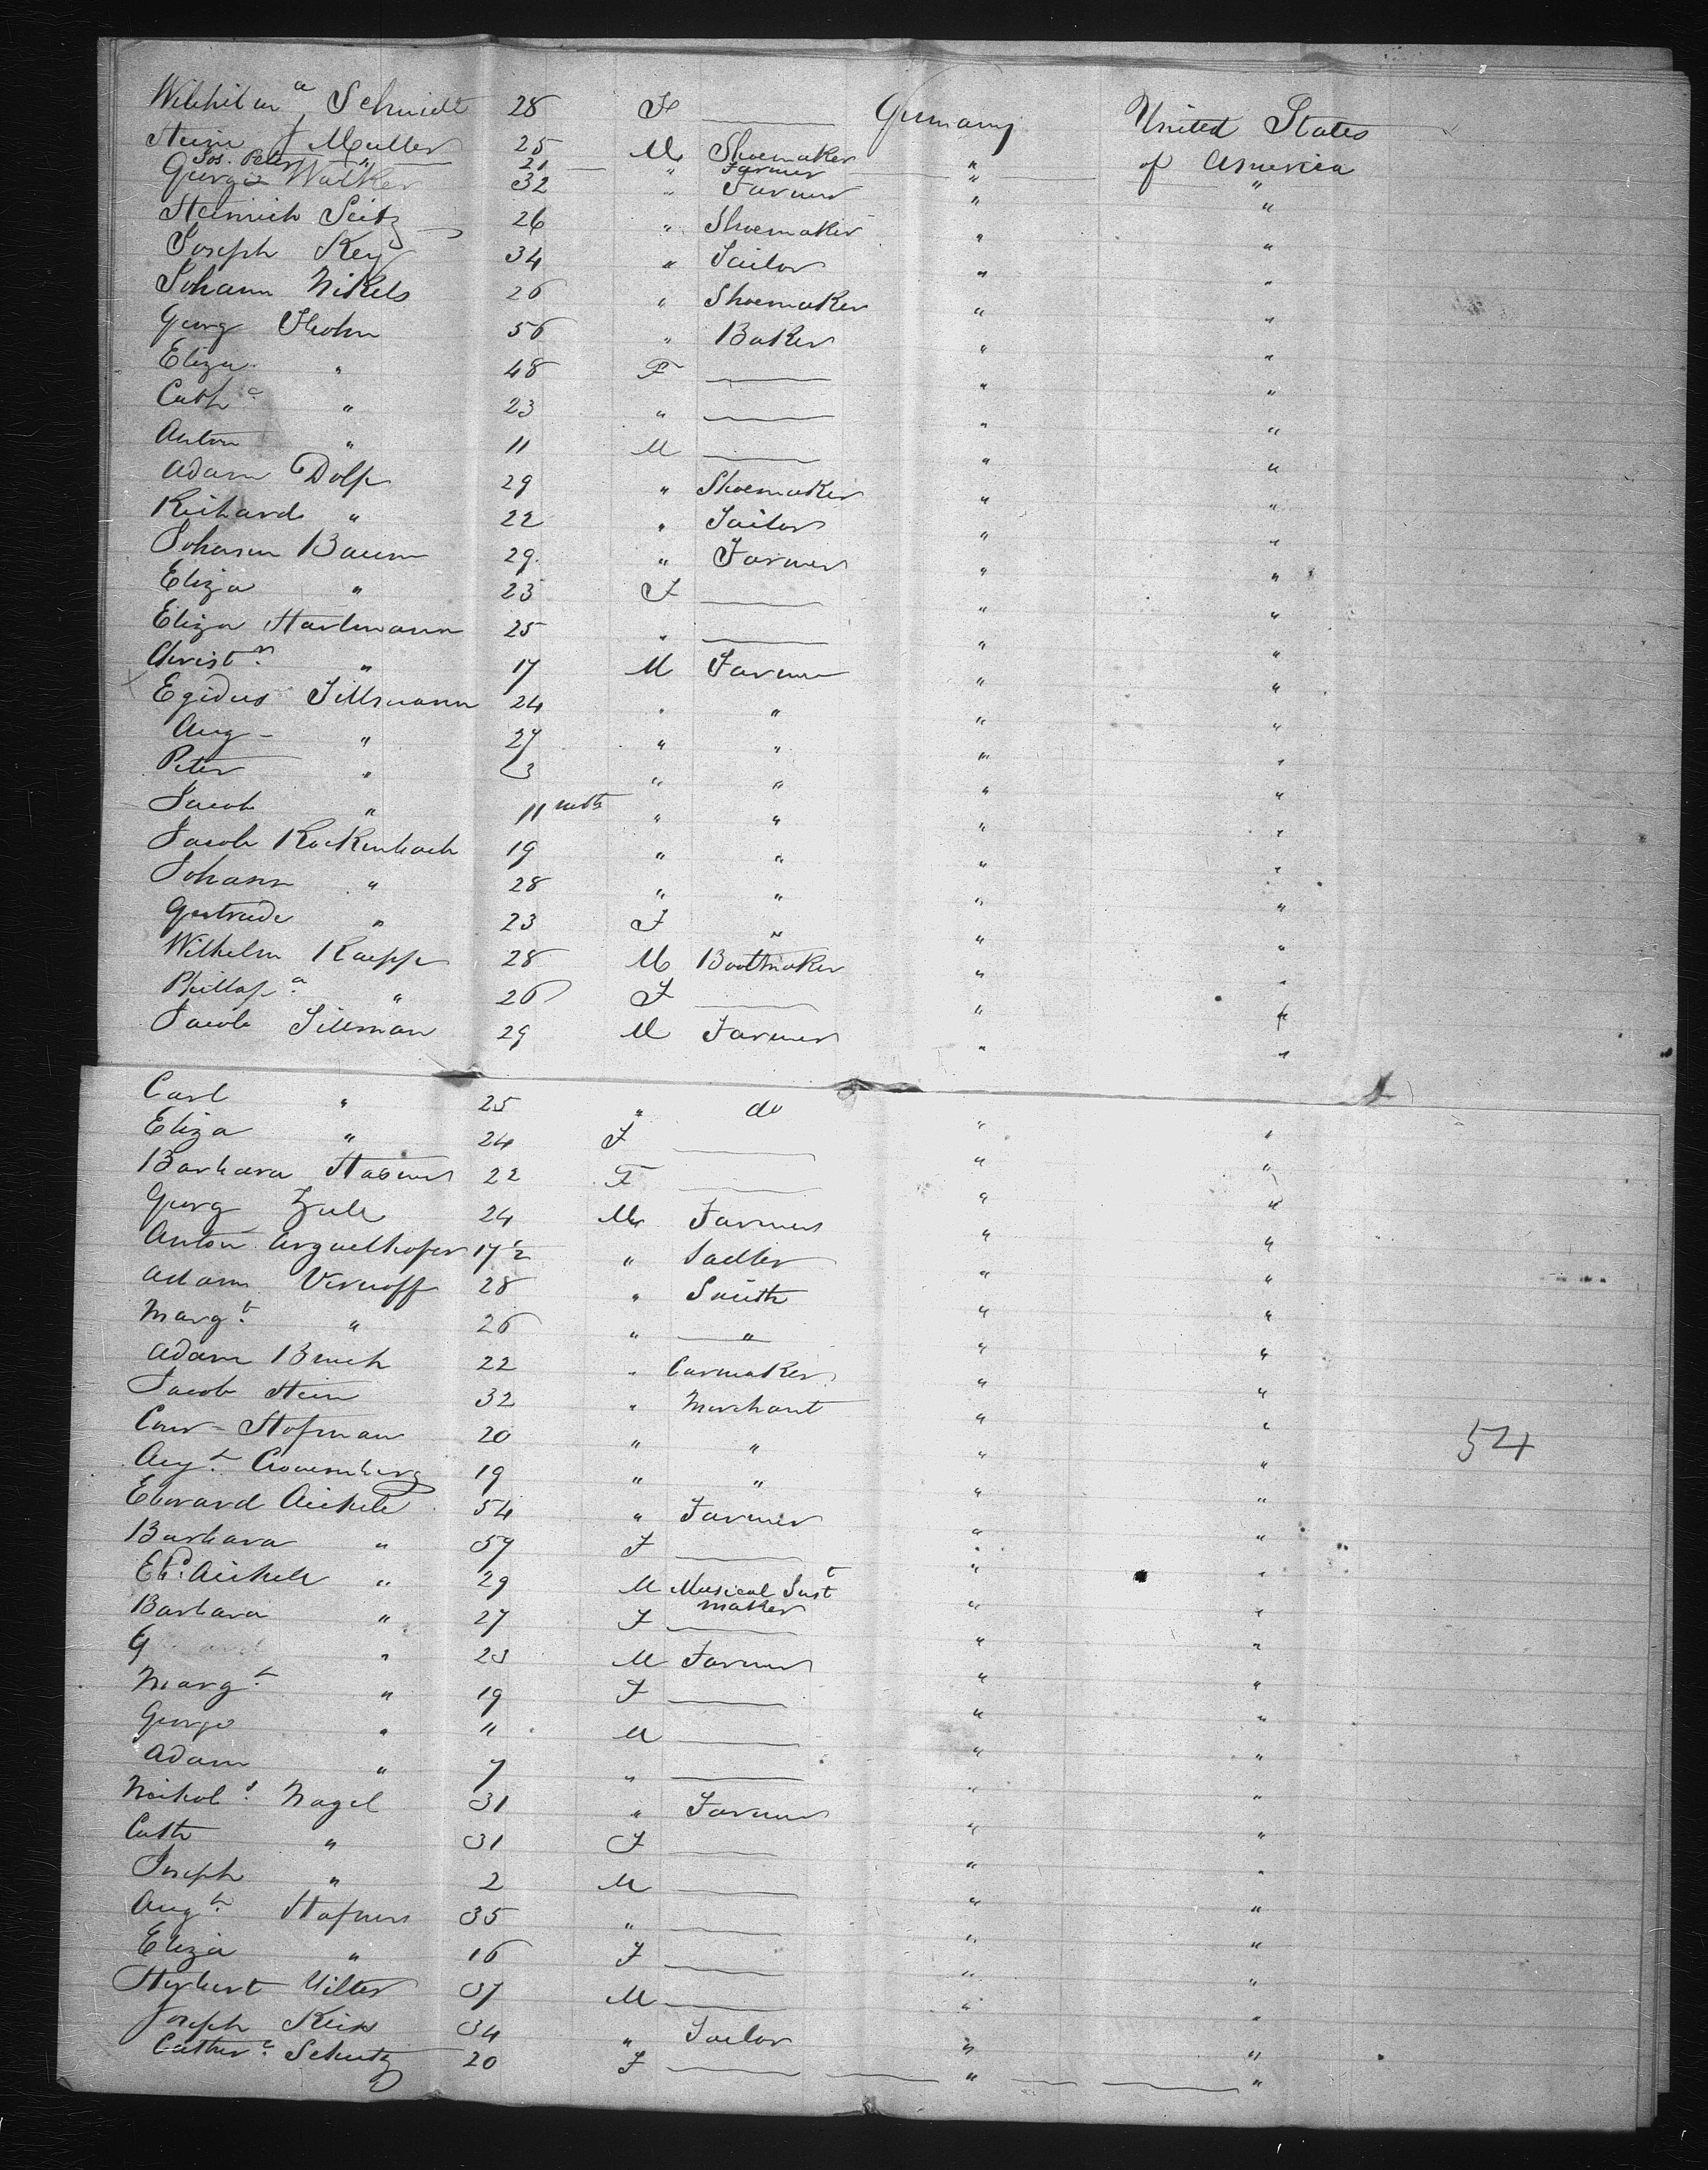 Wilhilm a Schmidt 28 F Germany United States
Heinr J Muller 25 M Shoemaker " of America
Jos. Peter " 21 " Farmer "
George Walker 32 " Farmer " "
Heinrich Seitz 26 " Shoemaker " "
Joseph Key 34 " Tailor " "
Johann Nikels 26 " Shoemaker " "
Georg Hohn 56 " Baker " "
Eliza " 48 F " "
Cath a " 23 " " "
Anton " 11 M " "
Adam Dolf 29 " Shoemaker " "
Richard " 22 " Tailor " "
Johann Baum 29 " Farmer " "
Eliza " 23 F " "
Eliza Hartmann 25 " " "
Christ n " 17 M Farmer " "
Egidus Tillmann 24 " " " "
Aug " 27 " " " "
Peter " 3 " " " "
Jacob " 11 mths " " " "
Jacob Rockenbach 19 " " " "
Johann " 28 " " " "
Gertrude " 23 F " " "
Wilhelm Raepp 28 M Bootmaker " "
Phillap a " 26 F " "
Jacob Tillman 29 M Farmer " "
Carl " 25 " do " "
Eliza " 24 F " "
Barbara 22 F " "
Georg Zull 24 M Farmer " "
Anton 17 1/2 " Sadler " "
Adam Vernoff 28 " Smith " "
Marg t " 26 " " " "
Adam 22 " Carmaker " "
Jacob Hein 32 " Merchant " "
Hofman 20 " " " "
Aug t 19 " " " "
54
Eberard Aichele 54 " Farmer " "
Barbara " 59 F " "
Eb d Aichele " 29 M Musical Inst t maker " "
Barbara " 27 F " "
G " 23 M Farmer " "
Marg t " 19 F " "
George " " M " "
Adam " 7 " " "
Nichol s Nagel 31 " Farmer " "
Cath " 31 F " "
Joseph " 2 M " "
Aug t Hafner 35 " " "
Eliza " 16 F " "
Herbert Hilter 37 M " "
Joseph Keix 34 " Tailor " "
Cather a Schutz 20 F " "